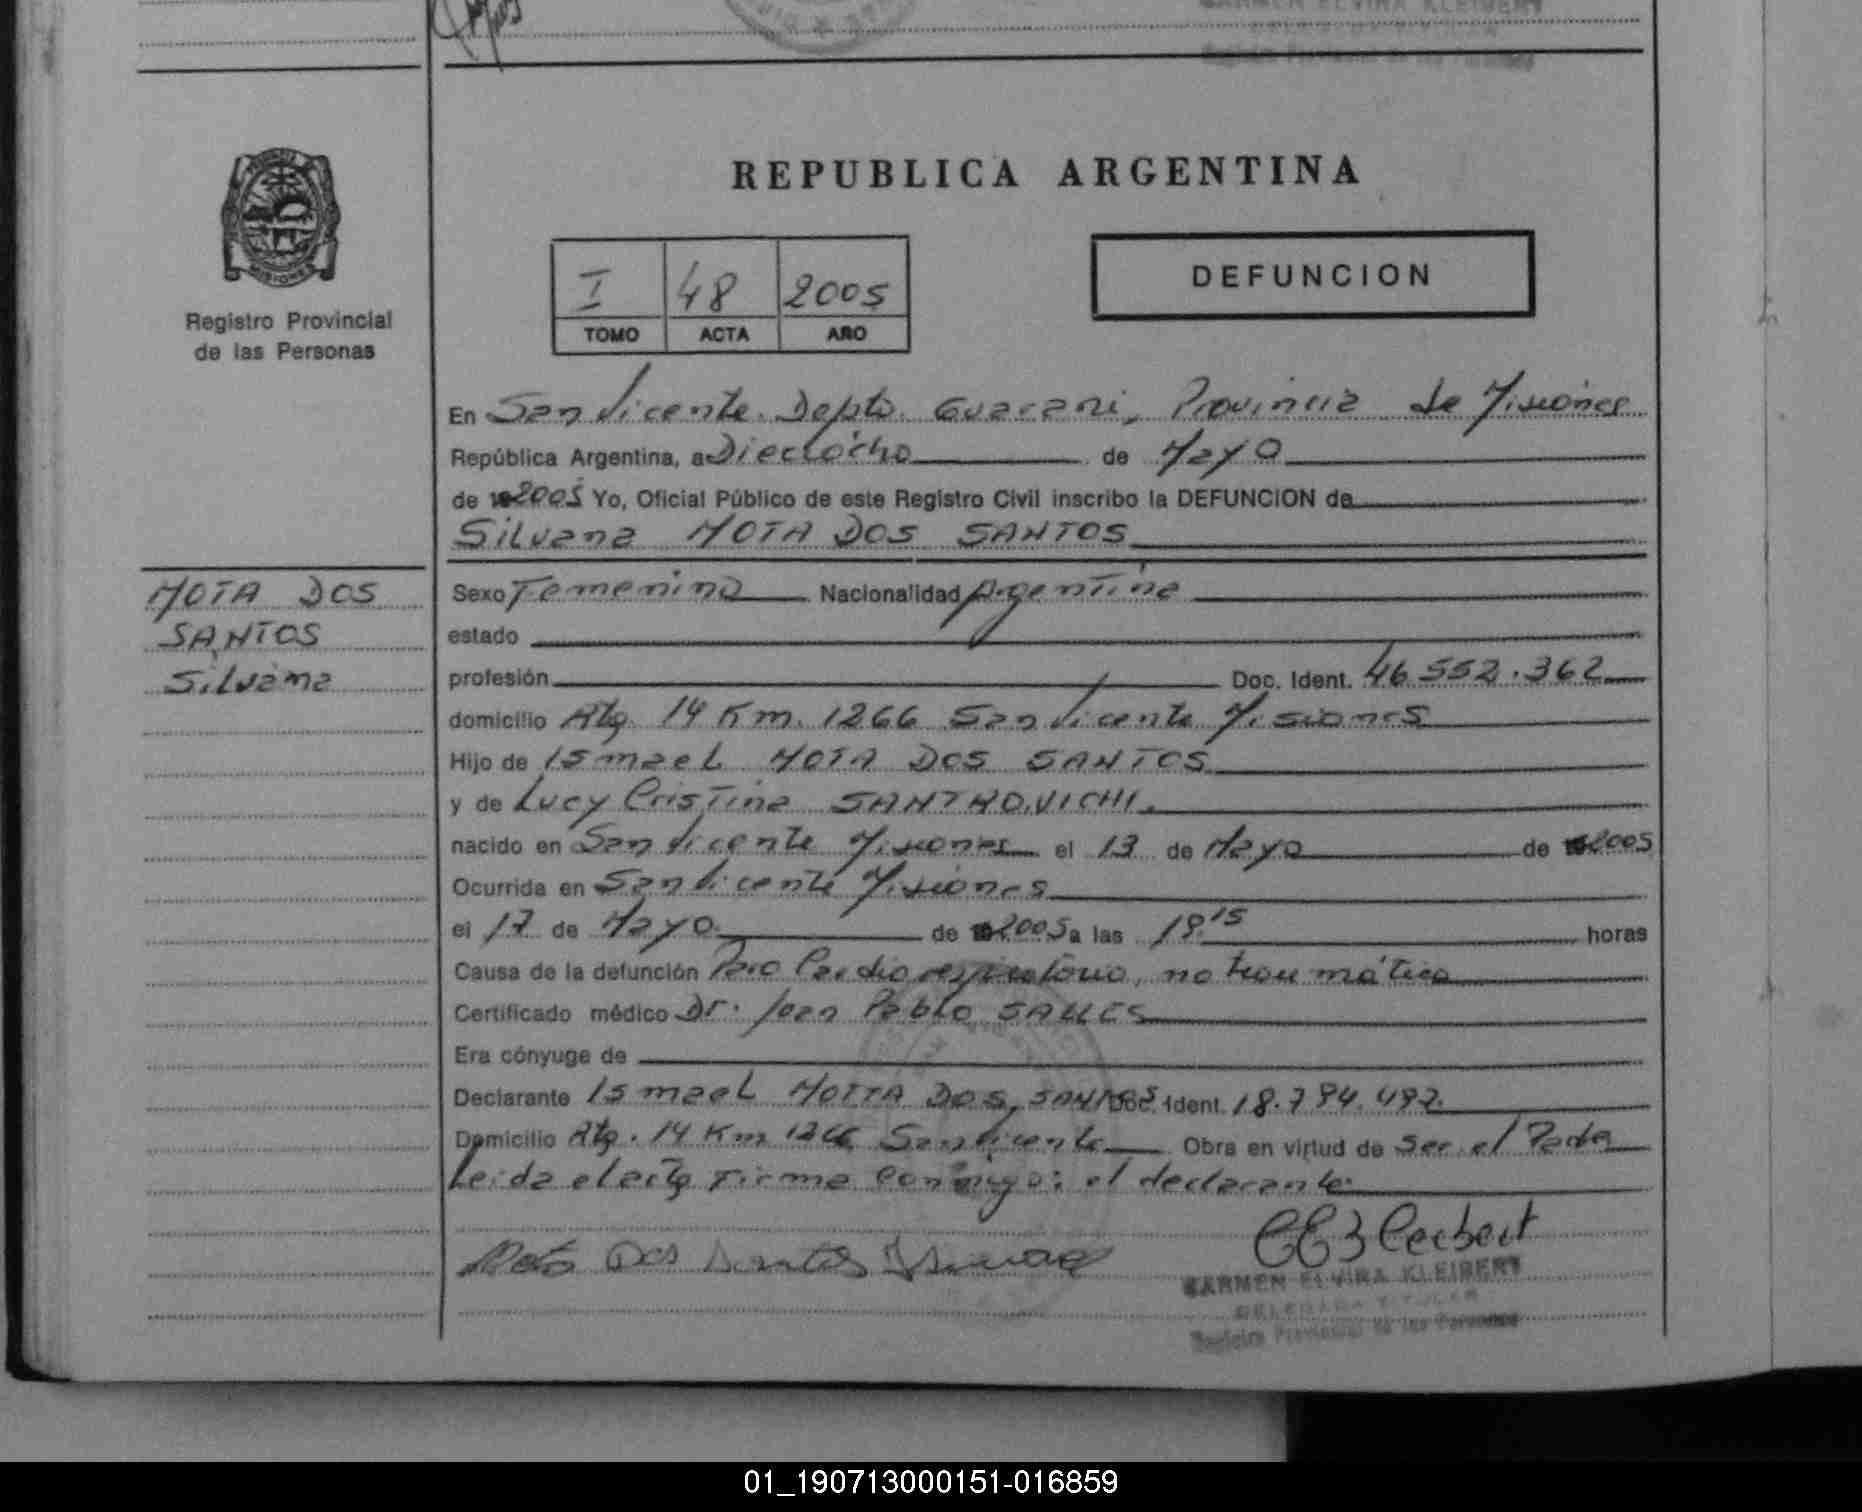 CARMEN ELVIRA KLEIBERT
DELEGADA TITULAR
Registro Provincial de las Personas
MISIONES
Registro Provincial
de las Personas
REPUBLICA ARGENTINA
I 48 2005
TOMO ACTA AÑO
DEFUNCION
En San Vicente Depto. Guarani, Provincia de Misiones
República Argentina, a Dieciocho de Mayo
de 2005 Yo, Oficial Público de este Registro Civil inscribo la DEFUNCION de
Silvana MOTA DOS SANTOS
MOTA DOS
SANTOS
Silvana
Sexo Femenino Nacionalidad Argentina
estado
profesión Doc. Ident. 46.552.362
domicilio Rta. 14 Km. 1266 San Vicente Misiones
Hijo de Ismael MOTA DOS SANTOS
y de Lucy Cristina SANTROVICHI.
nacido en San Vicente Misiones el 13 de Mayo de 2005
Ocurrida en San Vicente Misiones
el 17 de Mayo de 2005 a las 18:15 horas
Causa de la defunción Paro Cardio respiratorio, no traumático
Certificado médico Dr. Juan Pablo
Era cónyuge de
Declarante Ismael MOTTA DOS SANTOS Doc. Ident. 18.794.492
Domicilio Rta. 14 Km 1266 San Vicente Obra en virtud de ser el Padre
Leida el acta Firma conmigo: el declarante
Mota Dos Santos Ismael
CARMEN ELVIRA KLEIBERT
DELEGADA TITULAR
Registro Provincial de las Personas
01_190713000151-016859